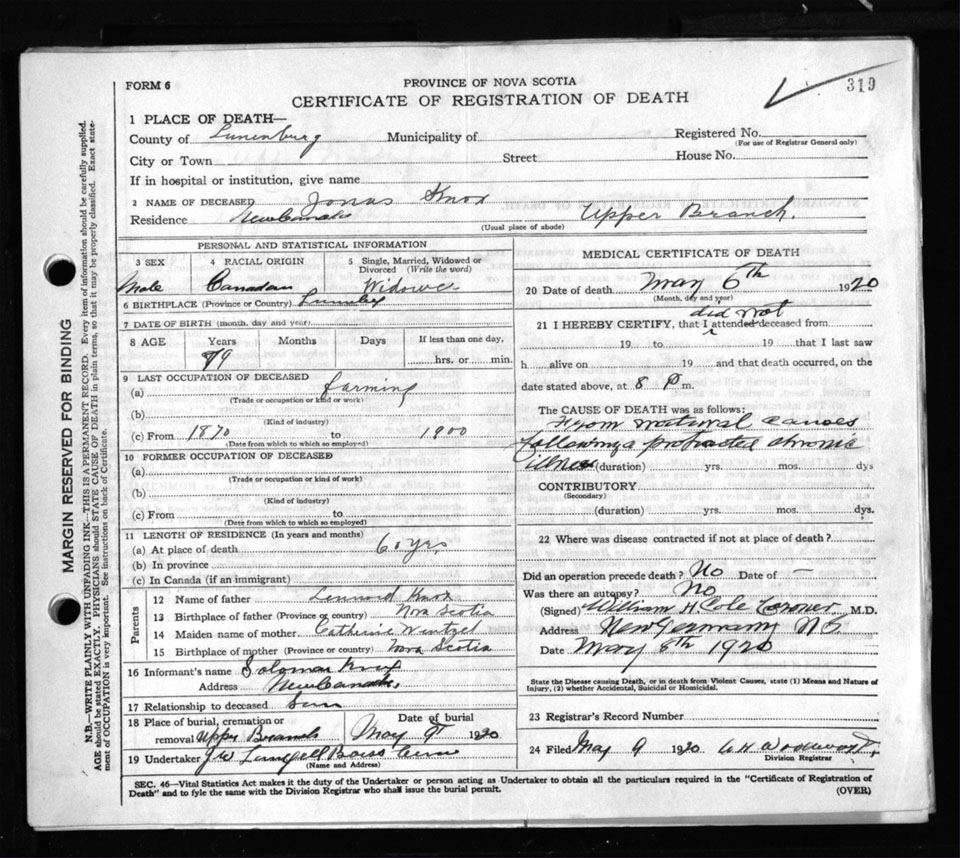 FORM 6
PROVINCE OF NOVA SCOTIA
319
CERTIFICATE OF REGISTRATION OF DEATH
1 PLACE OF DEATH—
County of Lunenburg Municipality of Registered No.
(For use of Registrar General only)
City or Town Street House No.
If in hospital or institution, give name
2 NAME OF DECEASED Jonas Knox
Residence New Canada Upper Branch.
(Usual place of abode)
PERSONAL AND STATISTICAL INFORMATION
3 SEX 4 RACIAL ORIGIN 5 Single, Married, Widowed or Divorced (Write the word)
Male Canadian Widower
6 BIRTHPLACE (Province or Country)
7 DATE OF BIRTH (month, day and year)
8 AGE Years Months Days If less than one day,
79 hrs. or min.
9 LAST OCCUPATION OF DECEASED
(a) farming
(Trade or occupation or kind or work)
(b)
(Kind of industry)
(c) From 1870 to 1900
(Date from which to which so employed)
10 FORMER OCCUPATION OF DECEASED
(a)
(Trade or occupation or kind of work)
(b)
(Kind of industry)
(c) From to
(Date from which to which so employed)
11 LENGTH OF RESIDENCE (In years and months)
(a) At place of death 60 yrs,
(b) In province
(c) In Canada (if an immigrant)
Parents
12 Name of father Lennord Knox
13 Birthplace of father (Province or country) Nova Scotia
14 Maiden name of mother Catherine Wentzel
15 Birthplace of mother (Province or country) Nova Scotia
16 Informant's name Soloman Knox
Address New Canada,
17 Relationship to deceased Son
18 Place of burial, cremation or removal Upper Branch
Date of burial May 9 1920
19 Undertaker
(Name and Address)
MEDICAL CERTIFICATE OF DEATH
20 Date of death May 6th 1920
(Month, day and year)
did not
21 I HEREBY CERTIFY, that I attended deceased from
19 to 19 that I last saw
h alive on 19 and that death occurred, on the
date stated above, at 8 P m.
The CAUSE OF DEATH was as follows:
From natural causes
following a protracted chronic
illness (duration) yrs. mos. dys
CONTRIBUTORY
(Secondary)
(duration) yrs. mos. dys.
22 Where was disease contracted if not at place of death?
Did an operation precede death? No Date of —
Was there an autopsy? No
(Signed) William H Cole Coroner M.D.
Address New Germany NS
Date May 8th 1920
State the Disease causing Death, or in death from Violent Causes, state (1) Means and Nature of Injury, (2) whether Accidental, Suicidal or Homicidal.
23 Registrar's Record Number
24 Filed May 9 1920
Division Registrar
SEC. 46—Vital Statistics Act makes it the duty of the Undertaker or person acting as Undertaker to obtain all the particulars required in the "Certificate of Registration of
Death" and to fyle the same with the Division Registrar who shall issue the burial permit. (OVER)
MARGIN RESERVED FOR BINDING
N.B.—WRITE PLAINLY WITH UNFADING INK—THIS IS A PERMANENT RECORD. Every item of information should be carefully supplied.
AGE should be stated EXACTLY. PHYSICIANS should STATE CAUSE OF DEATH in plain terms, so that it may be properly classified. Exact statement of OCCUPATION is very important. See instructions on back of Certificate.